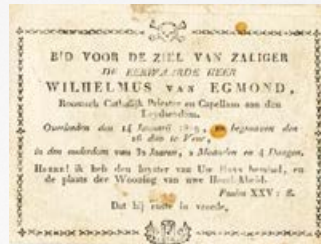 BID VOOR DE ZIEL VAN ZALIGER
DE EERWAARDE HEER
WILHELMUS VAN EGMOND,
Roomsch Catholijk Priester en Capellaan aan den
Leydschendam.
Overleden den 14 Januarij en begraven den
18 dito te Veur,
in den ouderdom van Jaaren, 2 Maanden en 4 Daagen.
Heere! ik heb den luyster van Uw Huys bemind, en
de plaats der Wooning van uwe Heerlykheid.
Psalm XXV: 8.
Dat hij ruste in vrede.